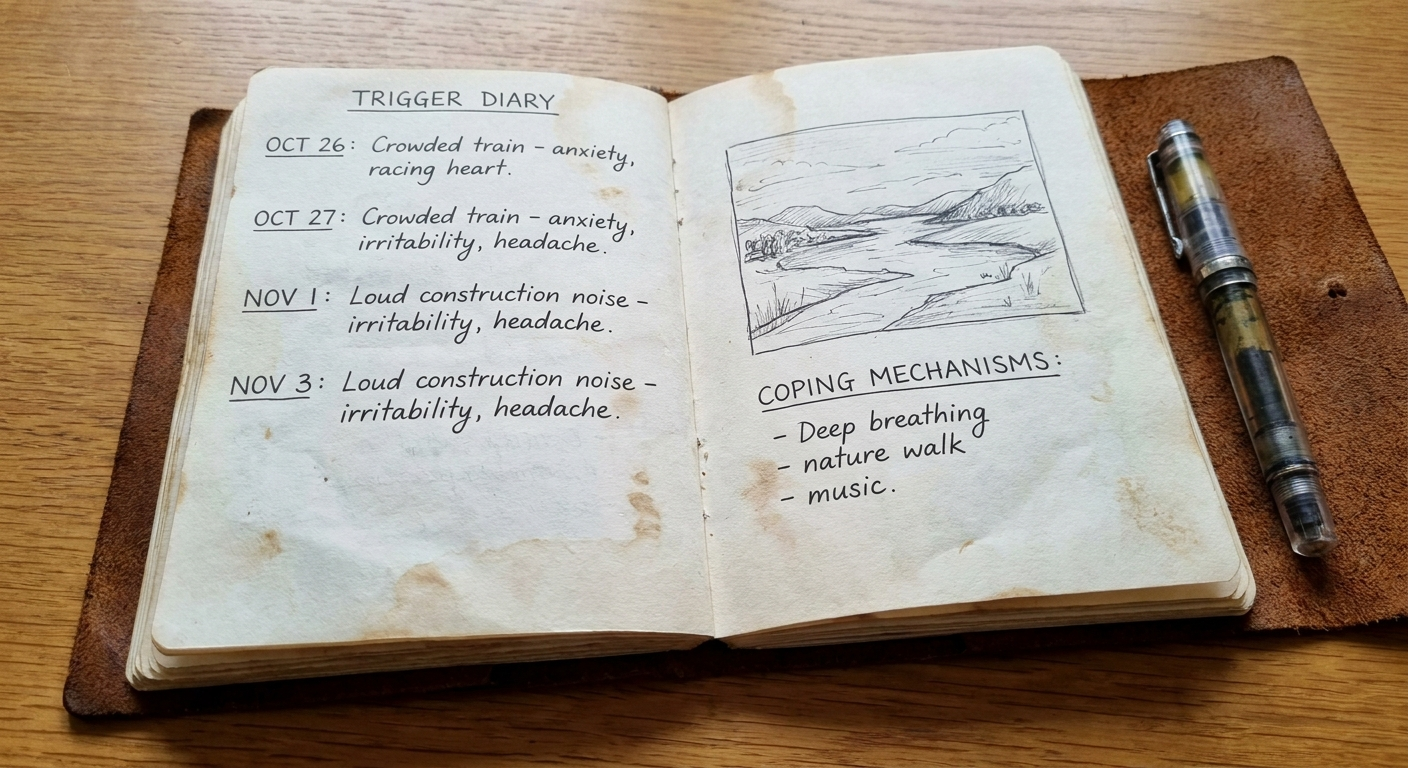 TRIGGER DIARY
OCT 26: Crowded train – anxiety,
racing heart.
OCT 27: Crowded train – anxiety,
irritability, headache.
NOV 1: Loud construction noise –
irritability, headache.
NOV 3: Loud construction noise –
irritability, headache.
COPING MECHANISMS:
– Deep breathing
– nature walk
– music.